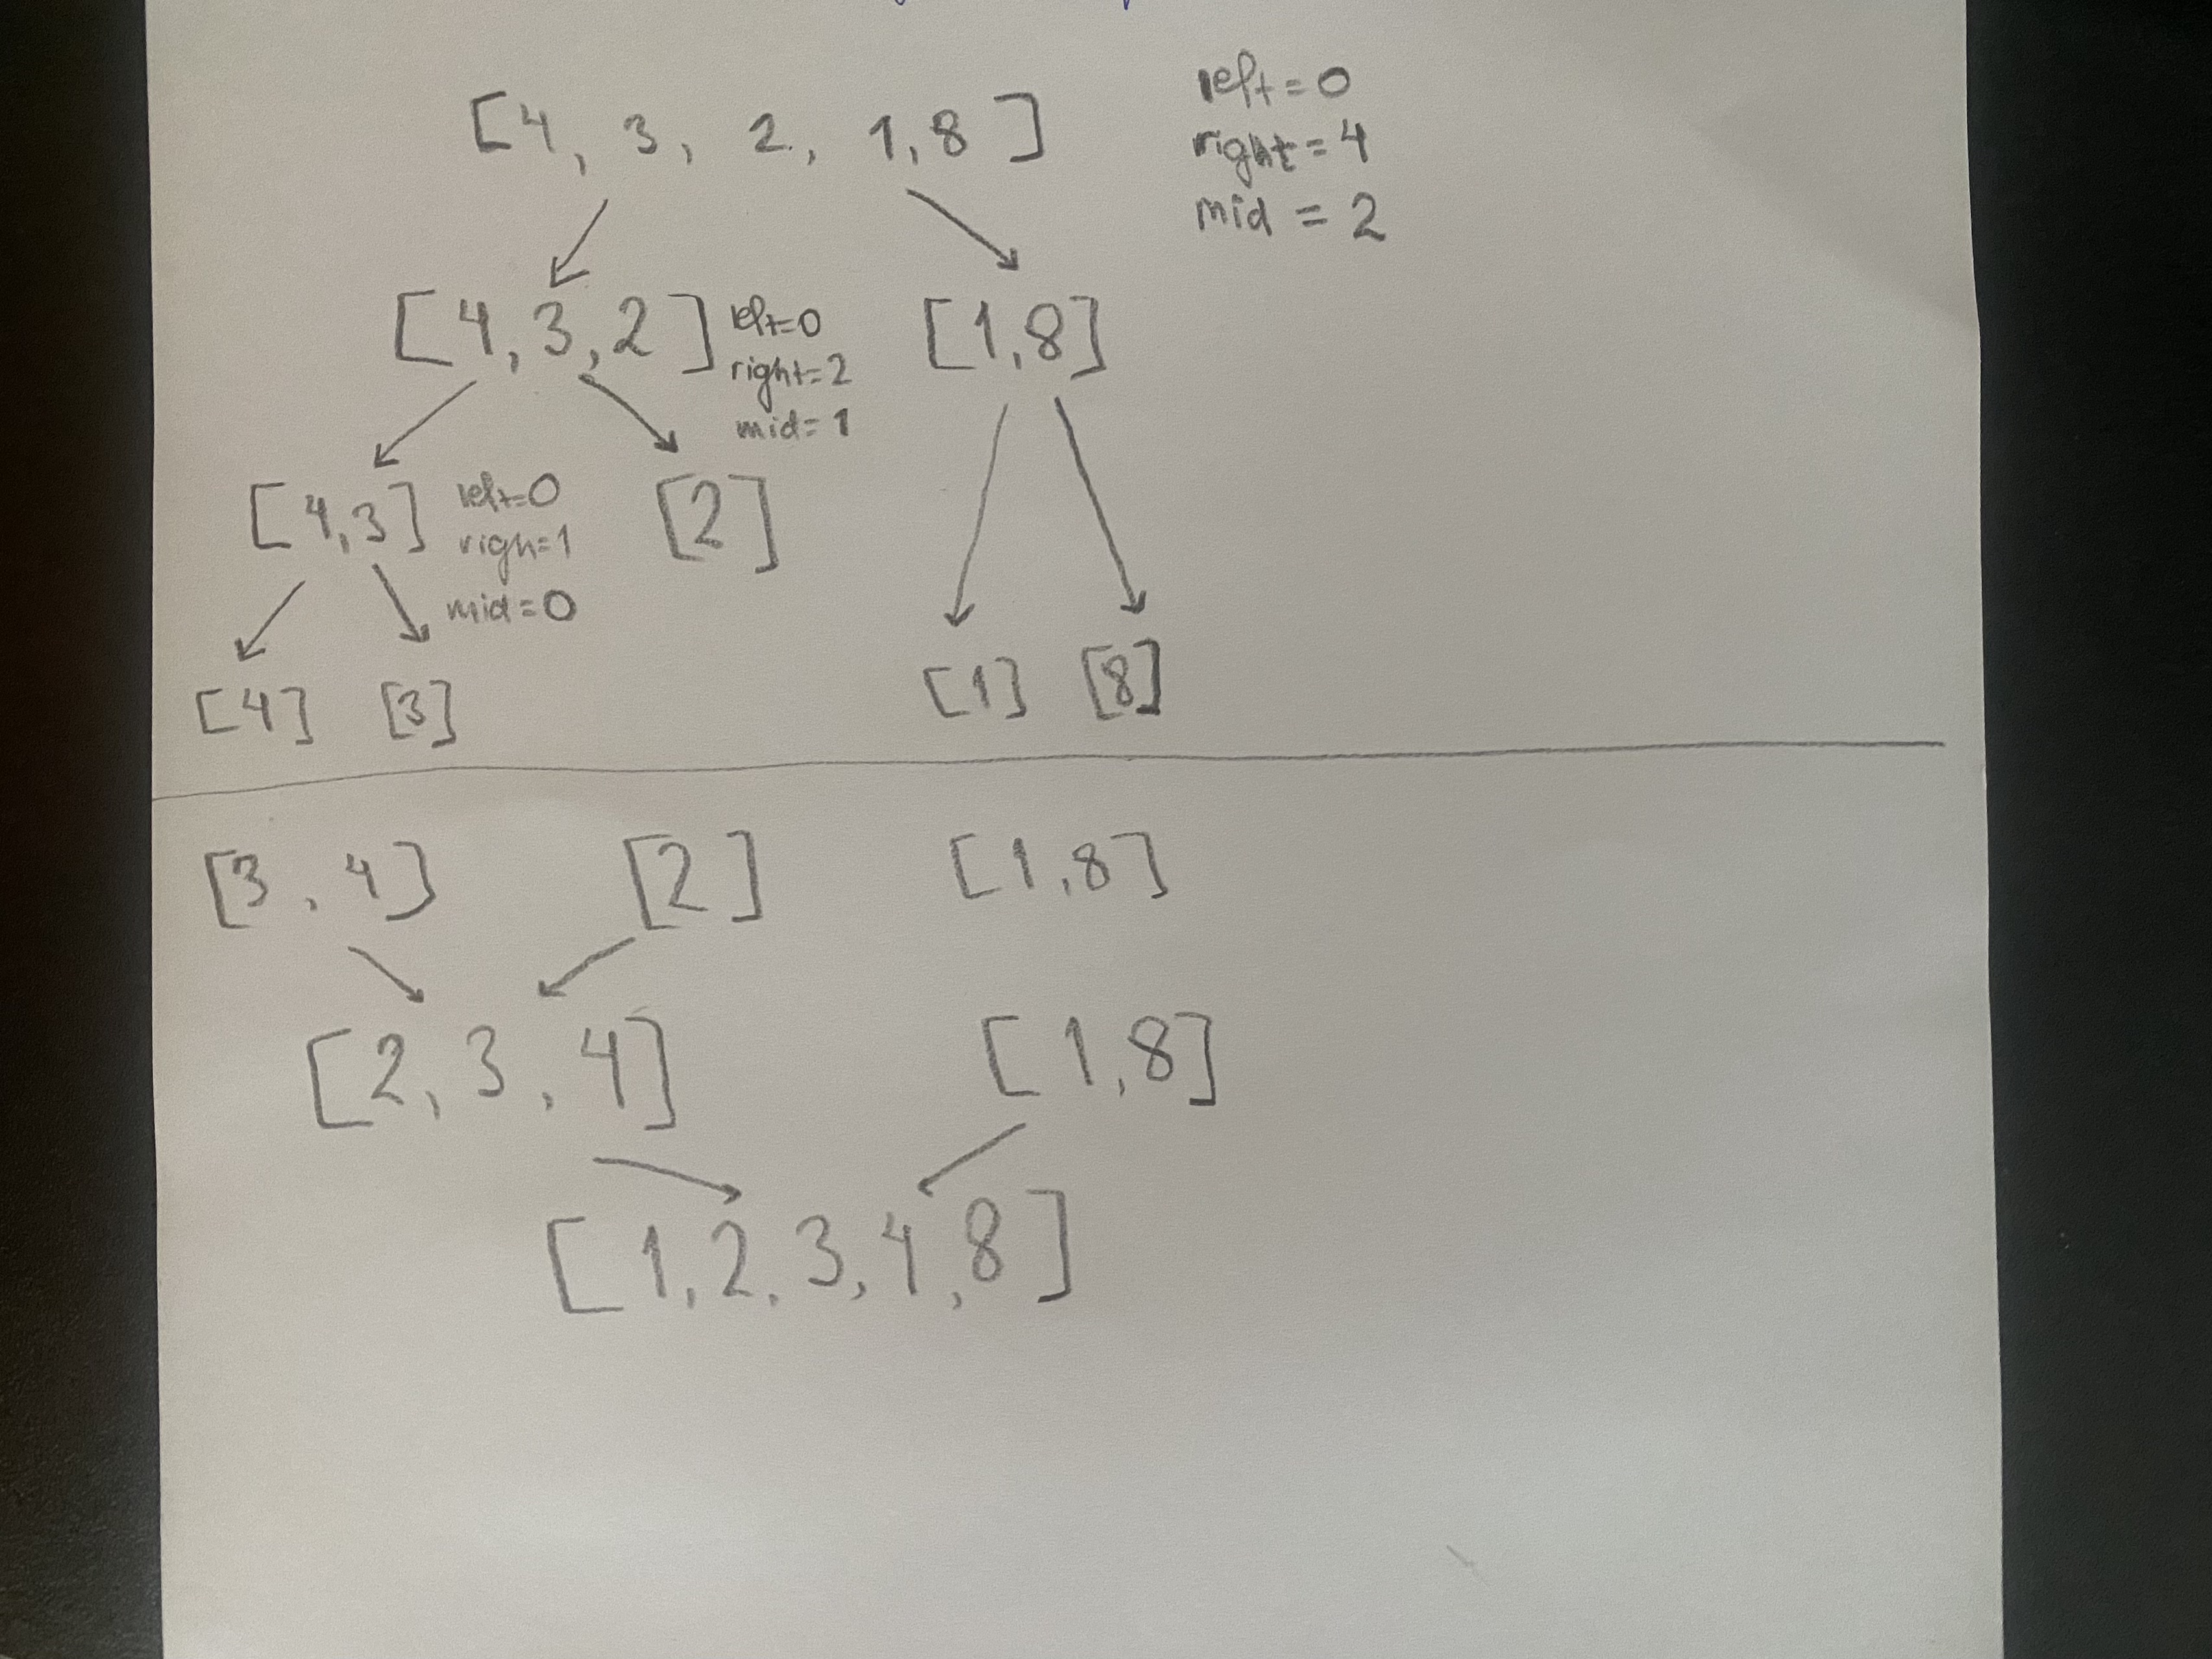 [4, 3, 2, 1, 8]
left=0
right=4
mid = 2
[4, 3, 2]
left=0
right=2
mid=1
[1, 8]
[4, 3]
left=0
righ=1
mid=0
[2]
[4] [3]
[1] [8]
[3, 4] [2] [1, 8]
[2, 3, 4] [1, 8]
[1, 2, 3, 4, 8]